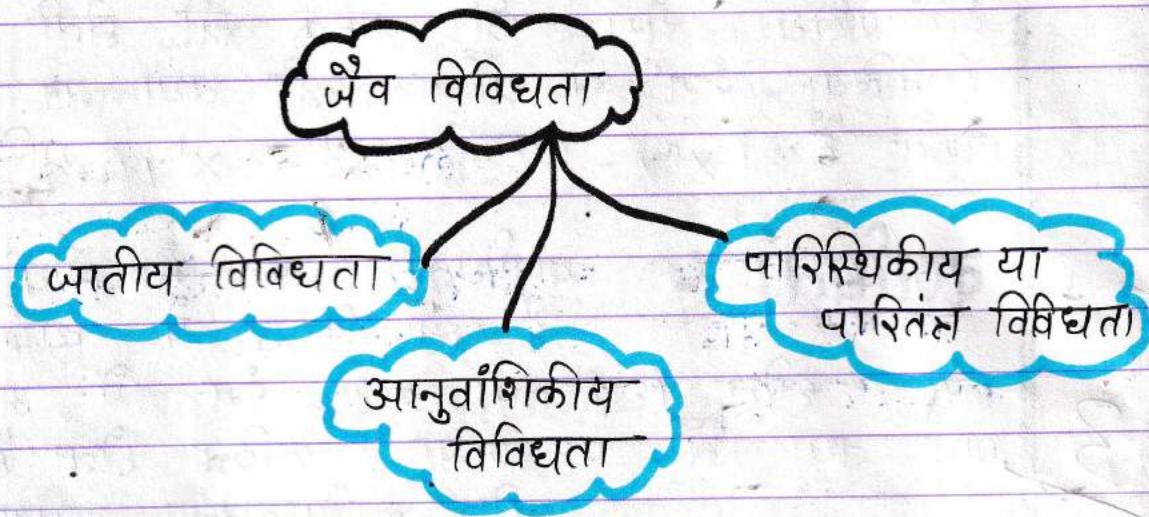 जैव विविधता
जातीय विविधता
आनुवांशिकीय
विविधता
पारिस्थिकीय या
पारितंत्र विविधता